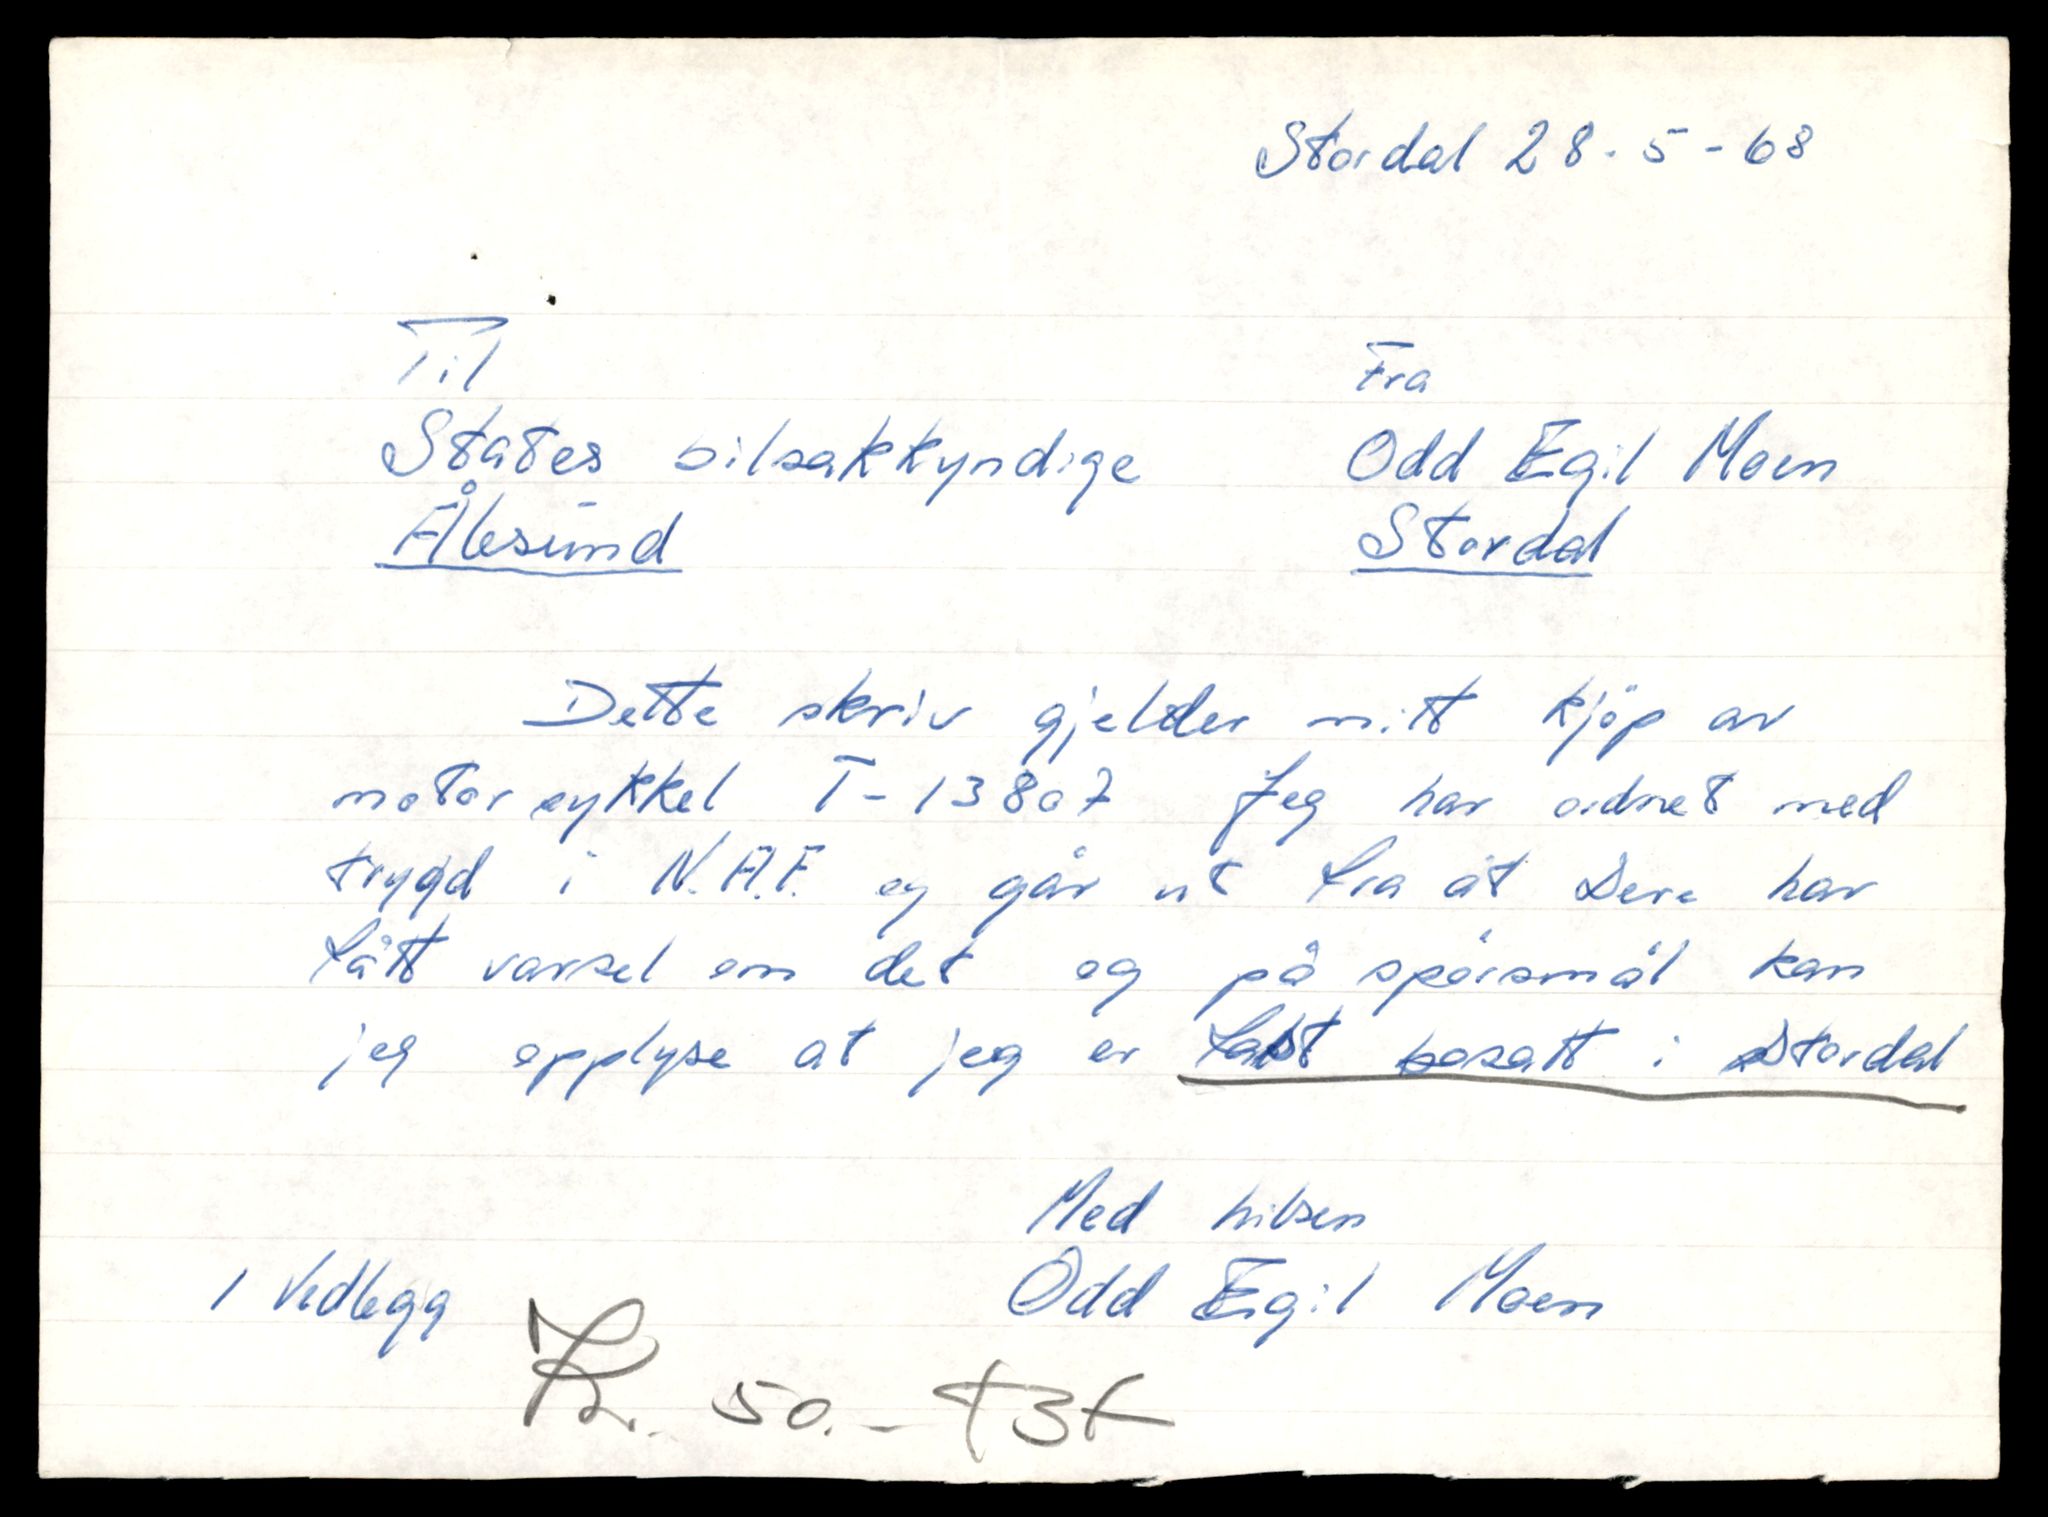 Stordal 28-5-68
Til
States bilsakkyndige
Ålesund
Fra
Odd Egil Moen
Stordal
Dette skriv gjelder mitt kjöp av
motorsykkel T-13807 Jeg har ordnet med
trygd i N.A.F. og går ut fra at Dere har
fått varsel om det og på spörsmål kan
jeg opplyse at jeg er fast bosatt i Stordal
Med hilsen
Odd Egil Moen
1 Vedlegg
Kr. 50.-